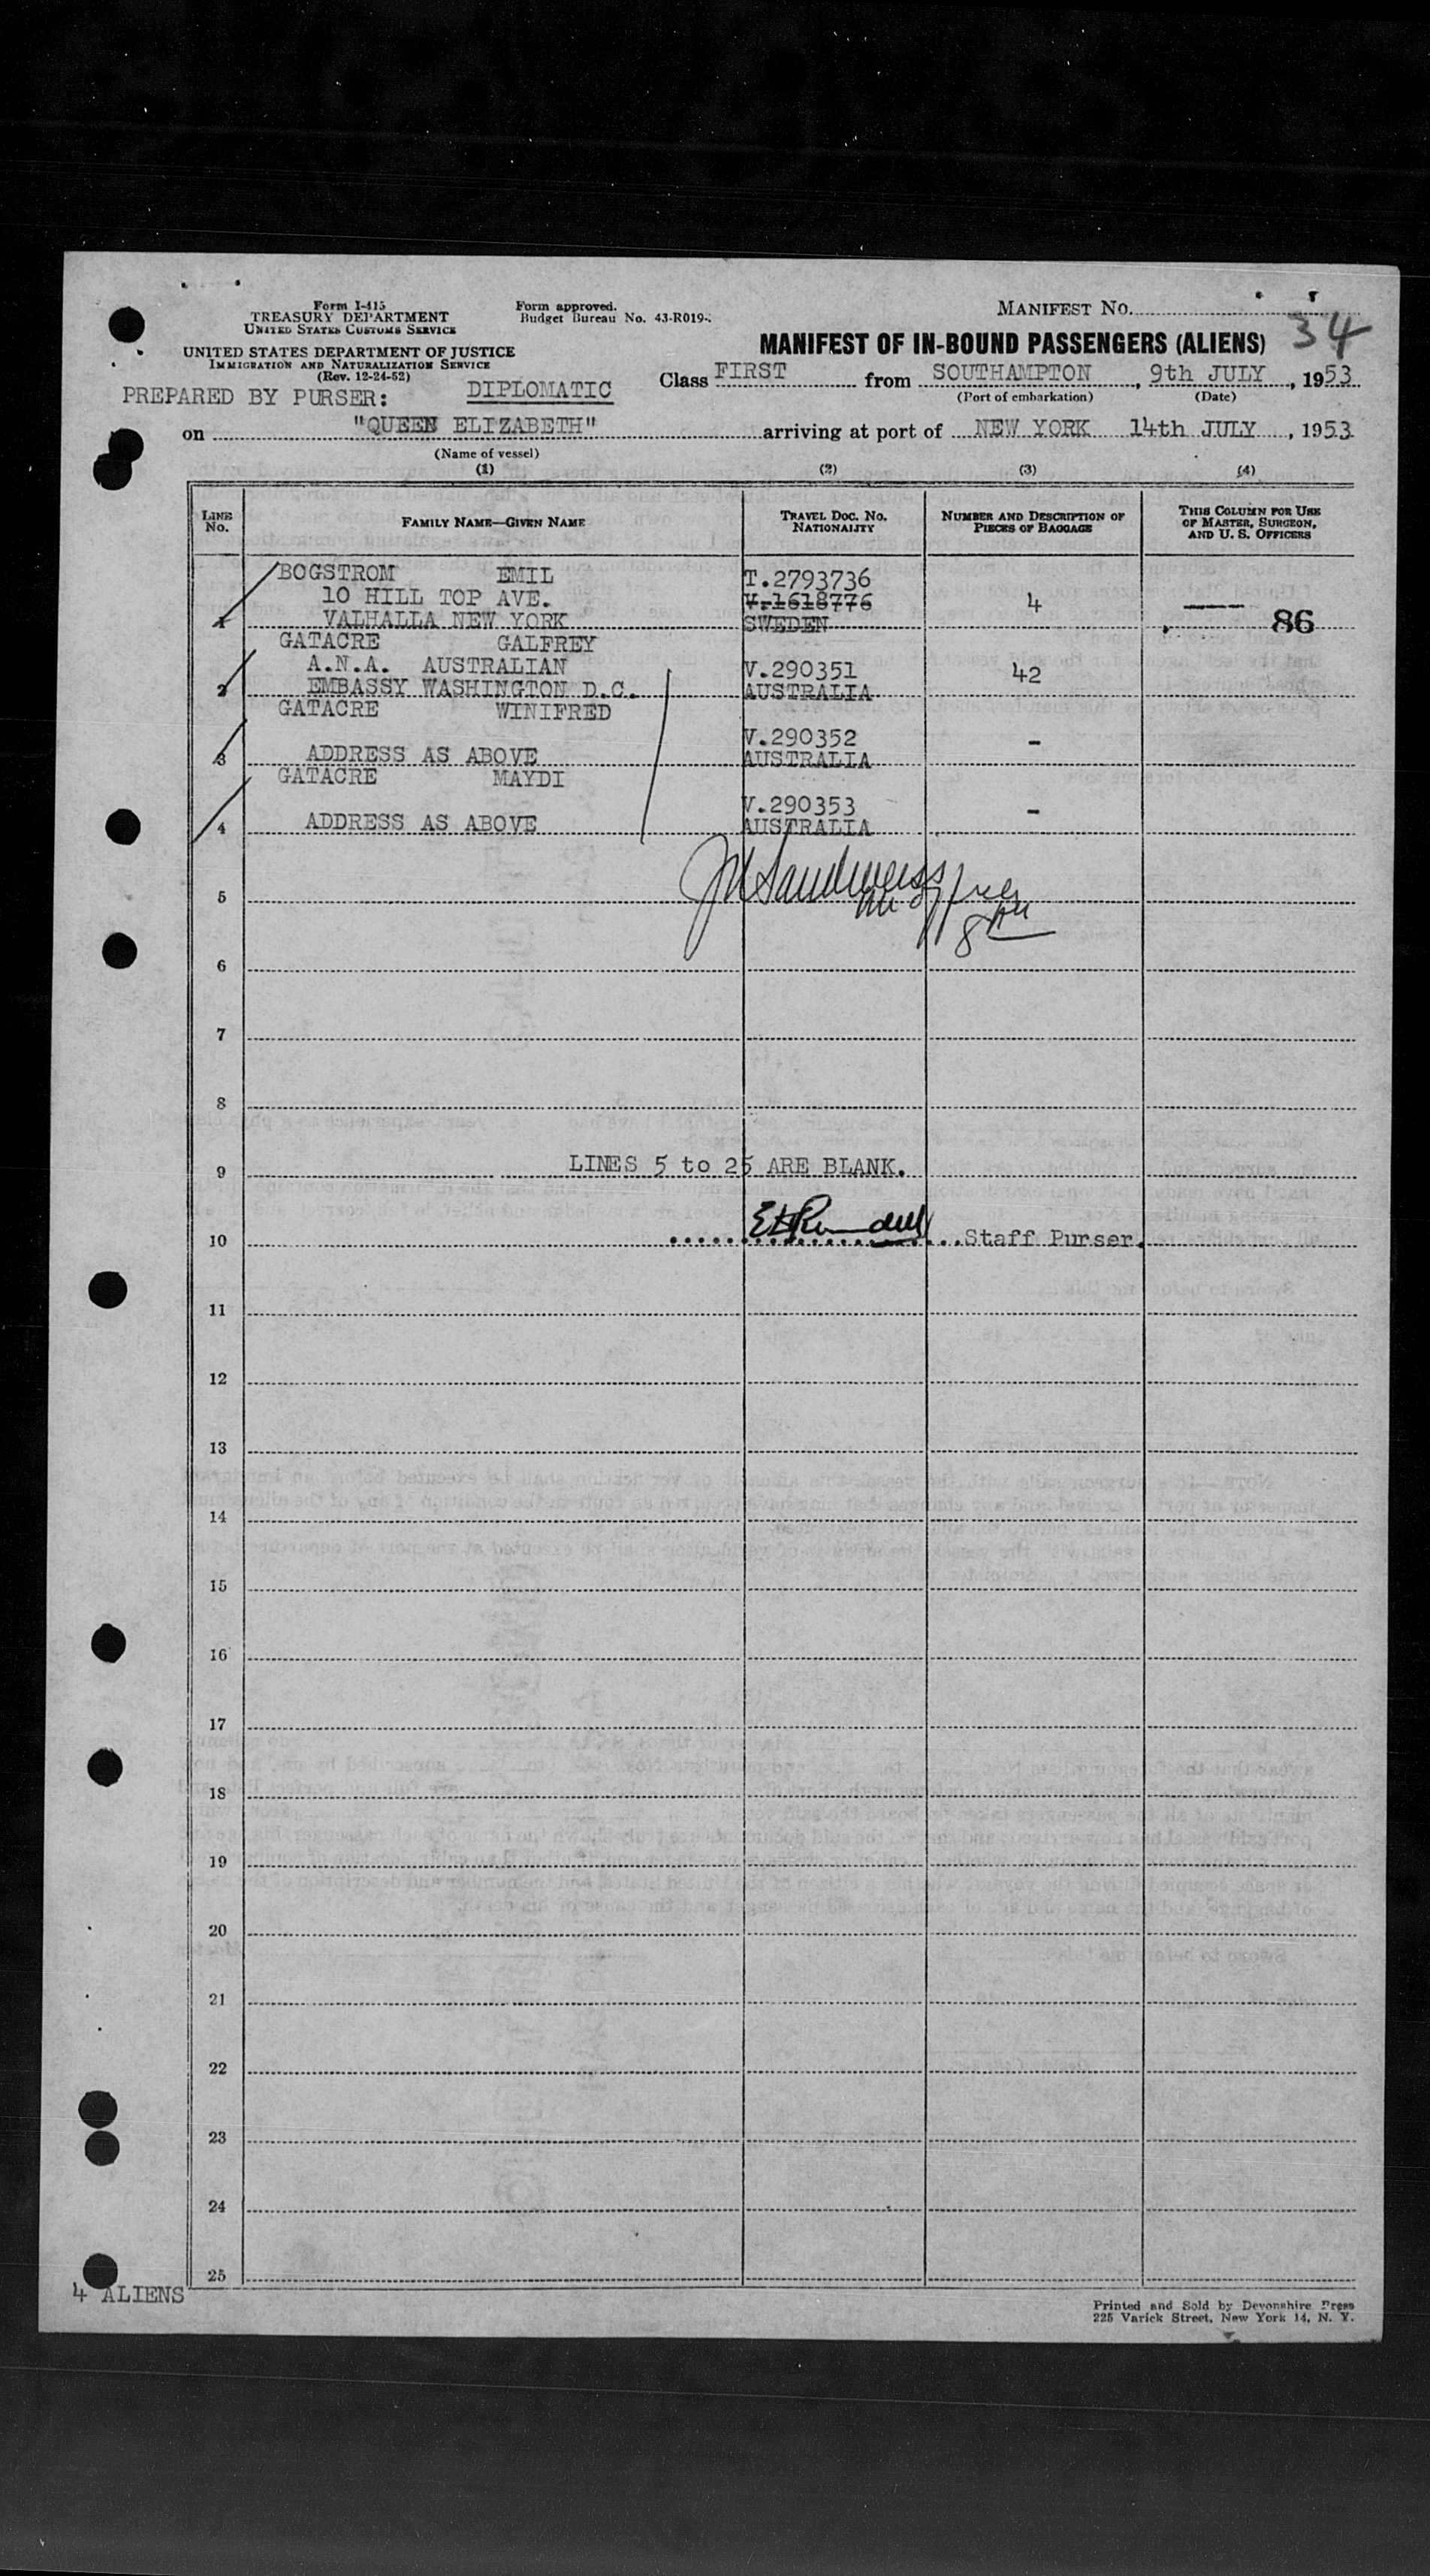 Form I-415
TREASURY DEPARTMENT
UNITED STATES CUSTOMS SERVICE
Form approved.
Budget Bureau No. 43-R019-.
MANIFEST No.
34
UNITED STATES DEPARTMENT OF JUSTICE
IMMIGRATION AND NATURALIZATION SERVICE
(Rev. 12-24-52)
MANIFEST OF IN-BOUND PASSENGERS (ALIENS)
PREPARED BY PURSER: DIPLOMATIC
Class FIRST from SOUTHAMPTON, 9th JULY, 1953
(Port of embarkation) (Date)
on "QUEEN ELIZABETH" arriving at port of NEW YORK 14th JULY, 1953
(Name of vessel)
(1) (2) (3) (4)
LINE No. FAMILY NAME—GIVEN NAME TRAVEL DOC. NO. NATIONALITY NUMBER AND DESCRIPTION OF PIECES OF BAGGAGE THIS COLUMN FOR USE OF MASTER, SURGEON, AND U. S. OFFICERS
BOGSTROM EMIL T.2793736
10 HILL TOP AVE. V.1618776 4
1 VALHALLA NEW YORK SWEDEN 86
GATACRE GALFREY
A.N.A. AUSTRALIAN V.290351 42
2 EMBASSY WASHINGTON D.C. AUSTRALIA
GATACRE WINIFRED
V.290352 -
3 ADDRESS AS ABOVE AUSTRALIA
GATACRE MAYDI
V.290353 -
4 ADDRESS AS ABOVE AUSTRALIA
5
6
7
8
9 LINES 5 to 25 ARE BLANK.
10 Staff Purser.
11
12
13
14
15
16
17
18
19
20
21
22
23
24
25
4 ALIENS
Printed and Sold by Devonshire Press
225 Varick Street, New York 14, N. Y.